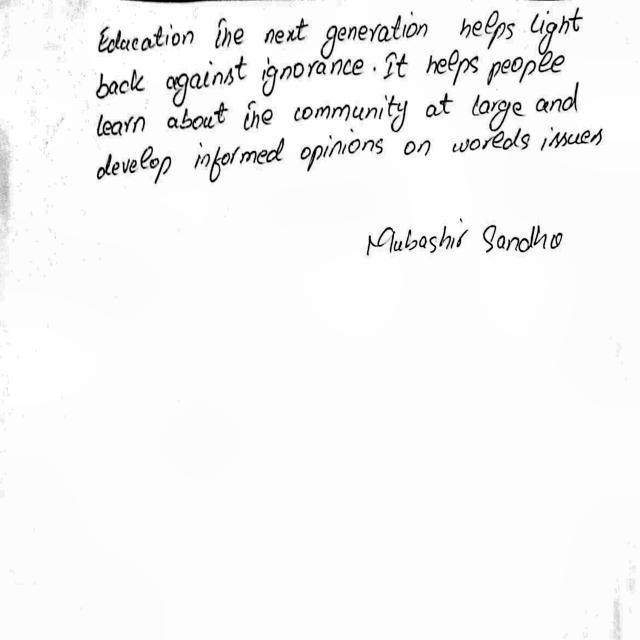 Education the next generation helps light
back against ignorance. It helps people
learn about the community at large and
develop informed opinions on woreds issues
Mubashir Sandho